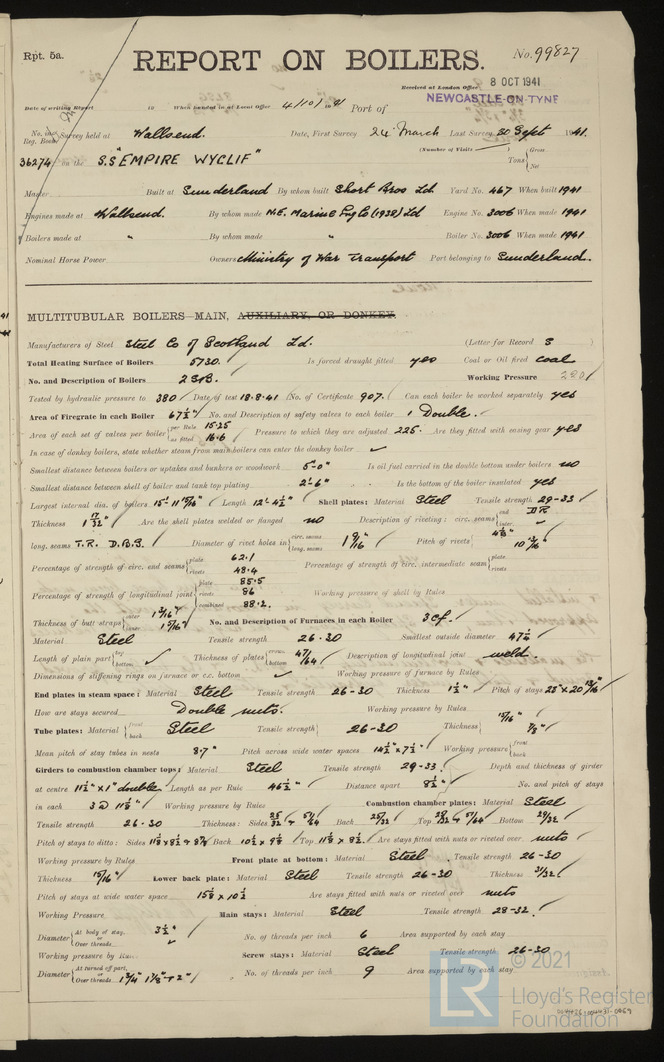 Rpt. 5a.
REPORT ON BOILERS.
No. 99827
Received at London Office
8 OCT 1941
NEWCASTLE-ON-TYNE
Date of writing Report 19 When handed in at Local Office 4/10/1941 Port of
No. in Reg. Book Survey held at Wallsend. Date, First Survey 24 March Last Survey 30 Sept 1941.
(Number of Visits)
36274 on the S.S "EMPIRE WYCLIF" Tons { Gross Net
Master Built at Sunderland By whom built Short Bros Ld. Yard No. 467 When built 1941
Engines made at Wallsend. By whom made N.E. Marine Eng Co (1938) Ld Engine No. 3006 When made 1941
Boilers made at " By whom made " Boiler No. 3006 When made 1941
Nominal Horse Power Owners Ministry of War Transport Port belonging to Sunderland.
MULTITUBULAR BOILERS—MAIN, AUXILIARY, OR DONKEY.
Manufacturers of Steel Steel Co of Scotland Ld. (Letter for Record S )
Total Heating Surface of Boilers 5730. Is forced draught fitted yes Coal or Oil fired coal
No. and Description of Boilers 2 S.B. Working Pressure 220
Tested by hydraulic pressure to 380 Date of test 18.8.41 No. of Certificate 907. Can each boiler be worked separately yes
Area of Firegrate in each Boiler 67½ No. and Description of safety valves to each boiler 1 Double.
Area of each set of valves per boiler { per Rule 15.25 as fitted 16.6 Pressure to which they are adjusted 225. Are they fitted with easing gear yes
In case of donkey boilers, state whether steam from main boilers can enter the donkey boiler
Smallest distance between boilers or uptakes and bunkers or woodwork 5'-0" Is oil fuel carried in the double bottom under boilers no
Smallest distance between shell of boiler and tank top plating 2'-6" Is the bottom of the boiler insulated yes
Largest internal dia. of boilers 15'-11 15/16" Length 12'-4½" Shell plates: Material Steel Tensile strength 29-33
Thickness 1 17/32" Are the shell plates welded or flanged no Description of riveting: circ. seams { end DR inter.
long. seams T.R. D.B.S. Diameter of rivet holes in { circ. seams long. seams 1 9/16" Pitch of rivets { 10 3/16"
Percentage of strength of circ. end seams { plate 62.1 rivets 48.4 Percentage of strength of circ. intermediate seam { plate rivets
Percentage of strength of longitudinal joint { plate 85.5 rivets 86 combined 88.2. Working pressure of shell by Rules
Thickness of butt straps { outer 1 3/16" inner 1 5/16" No. and Description of Furnaces in each Boiler 3 cf.
Material Steel Tensile strength 26-30 Smallest outside diameter 47¼
Length of plain part { top bottom Thickness of plates { crown bottom 47/64 Description of longitudinal joint weld.
Dimensions of stiffening rings on furnace or c.c. bottom Working pressure of furnace by Rules
End plates in steam space: Material Steel Tensile strength 26-30 Thickness 1½" Pitch of stays 25" x 20 13/16"
How are stays secured Double nuts. Working pressure by Rules
Tube plates: Material { front back Steel Tensile strength { 26-30 Thickness { 15/16" 7/8"
Mean pitch of stay tubes in nests 8.7" Pitch across wide water spaces 14½" x 7½" Working pressure { front back
Girders to combustion chamber tops: Material Steel Tensile strength 29-33 Depth and thickness of girder
at centre 11½" x 1" double Length as per Rule 46½" Distance apart 8½" No. and pitch of stays
in each 3 @ 11⅛" Working pressure by Rules Combustion chamber plates: Material Steel
Tensile strength 26-30 Thickness: Sides 25/32 + 51/64 Back 25/32 Top 25/32 + 51/64 Bottom 29/32
Pitch of stays to ditto: Sides Back Top 11⅛ x 8½ Are stays fitted with nuts or riveted over nuts
Working pressure by Rules Front plate at bottom: Material Steel Tensile strength 26-30
Thickness 15/16" Lower back plate: Material Steel Tensile strength 26-30 Thickness 31/32
Pitch of stays at wide water space 15⅛ x 10½ Are stays fitted with nuts or riveted over nuts
Working Pressure Main stays: Material Steel Tensile strength 28-32.
Diameter { At body of stay, or Over threads 3½" No. of threads per inch 6 Area supported by each stay
Working pressure by Rules Screw stays: Material Steel Tensile strength 26-30
Diameter { At turned off part, or Over threads 1¾" 1⅞" + 2" No. of threads per inch 9 Area supported by each stay
LR
© 2021
Lloyd's Register
Foundation